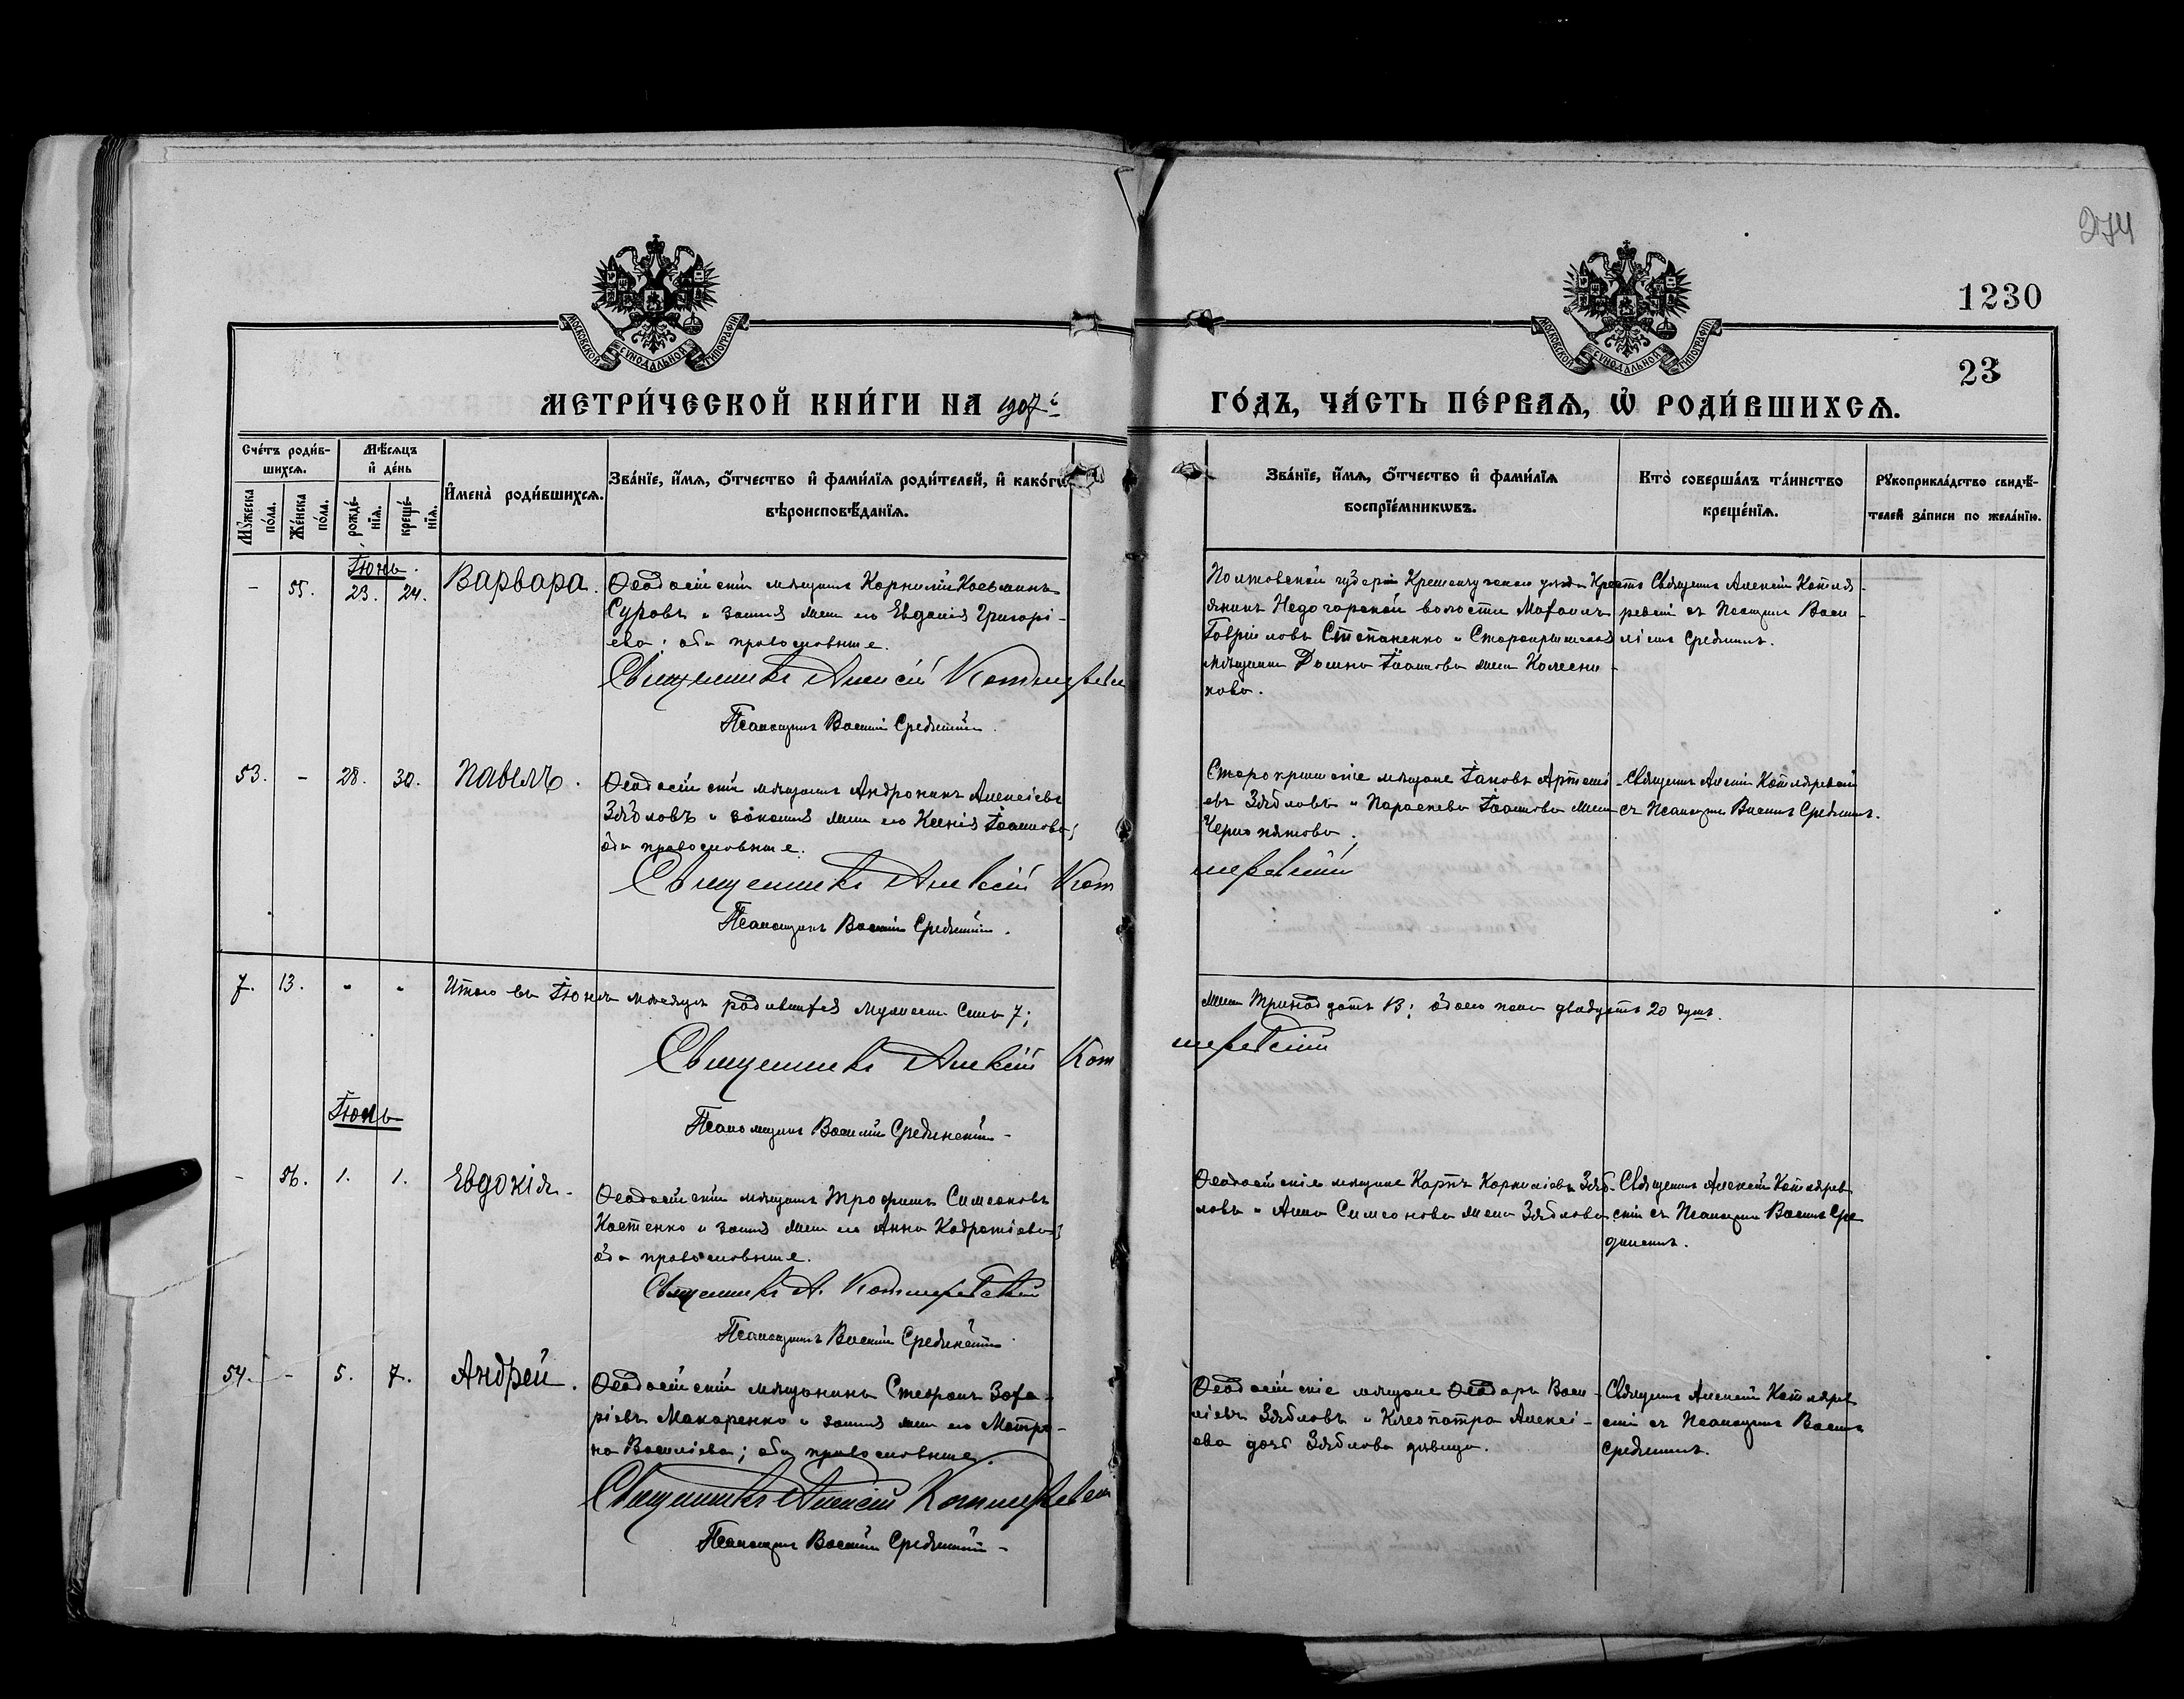 274
1230
23
МОСКОВСКОЙ СѴНОДАЛЬНОЙ ТИПОГРАФІИ
МОСКОВСКОЙ СѴНОДАЛЬНОЙ ТИПОГРАФІИ
МЕТРИ́ЧЕСКОЙ КНИ́ГИ НА 1907й
ГО́ДЪ, ЧА́СТЬ ПЕ́РВАЯ, Ѡ҆ РОДИ́ВШИХСЯ.
Сче́тъ роди́в-
шихся.
Мѣ́сяцъ
и҆ де́нь
Мꙋ́жеска
по́ла.
Же́нска
по́ла.
рожде́-
нїя.
креще́-
нїя.
И҆мена̀ роди́вшихся.
Зва́нїе, и҆́мя, ѻ҆́тчество и҆ фами́лїя роди́телей, и҆ како́гѡ
вѣроисповѣ́данїя.
Зва́нїе, и҆́мя, ѻ҆́тчество и҆ фами́лїя
воспрїе́мникѡвъ.
Кто̀ соверша́лъ та́инство
креще́нїя.
Рꙋкоприкла́дство свидѣ́-
телей за́писи по жела́нїю.
Іюнь.
- 55. 23. 24. Варвара.
Ѳеодосійскій мѣщанинъ Корнилій Косьминъ
Суровъ и законная жена его Евдокія Григорі-
ева; оба православные.
Священникъ Алексій Котляревскій
Псаломщикъ Василій Срединскій.
Полтавской губерніи Кременчугскаго уѣзда Крестъ
янинъ Недогарской волости Мафаилъ
Гавріиловъ Степаненко и Старокрымская
мѣщанка Домна Іоаннова жена Колесни-
кова.
Священникъ Алексій Котля-
ревскій съ Псаломщ. Васи-
ліемъ Срединскимъ.
53. - 28. 30. Павелъ.
Ѳеодосійскій мѣщанинъ Андроникъ Алексіевъ
Зябловъ и законная жена его Ксенія Іоаннова;
оба православные.
Священникъ Алексій Котляревскій
Псаломщикъ Василій Срединскій.
Старокрымскіе мѣщане Іаковъ Артемі-
евъ Зябловъ и Параскева Іоаннова жена
Чернопятова.
Священникъ Алексій Котляревскій
съ Псаломщ. Василіемъ Срединскимъ.
7. 13. " " Итого въ Іюнѣ мѣсяцѣ родившихся мужеска семь 7;
женска тринадцать 13; обоего пола двадцать 20 душъ.
Священникъ Алексій Котляревскій
Псаломщикъ Василій Срединскій
Іюль
- 56. 1. 1. Евдокія.
Ѳеодосійскій мѣщанинъ Трофимъ Симеоновъ
Костенко и законная жена его Анна Кодратіева;
оба православные.
Священникъ А. Котляревскій
Псаломщикъ Василій Срединскій
Ѳеодосійскіе мѣщане Карпъ Корниліевъ Зяб-
ловъ и Анна Симеонова жена Зяблова
Священникъ Алексій Котлярев-
скій съ Псаломщ. Василіемъ Сре
динскимъ.
54. - 5. 7. Андрей.
Ѳеодосійскій мѣщанинъ Стефанъ Заха-
ріевъ Макаренко и законная жена его Матро-
на Василіева; оба православные.
Священникъ Алексій Котляревскій
Псаломщикъ Василій Срединскій
Ѳеодосійскіе мѣщане Ѳеодоръ Васи-
ліевъ Зябловъ и Клеопатра Алексі-
ева дочь Зяблова дѣвица.
Священникъ Алексій Котлярев
скій съ Псаломщ. Василіемъ
Срединскимъ.